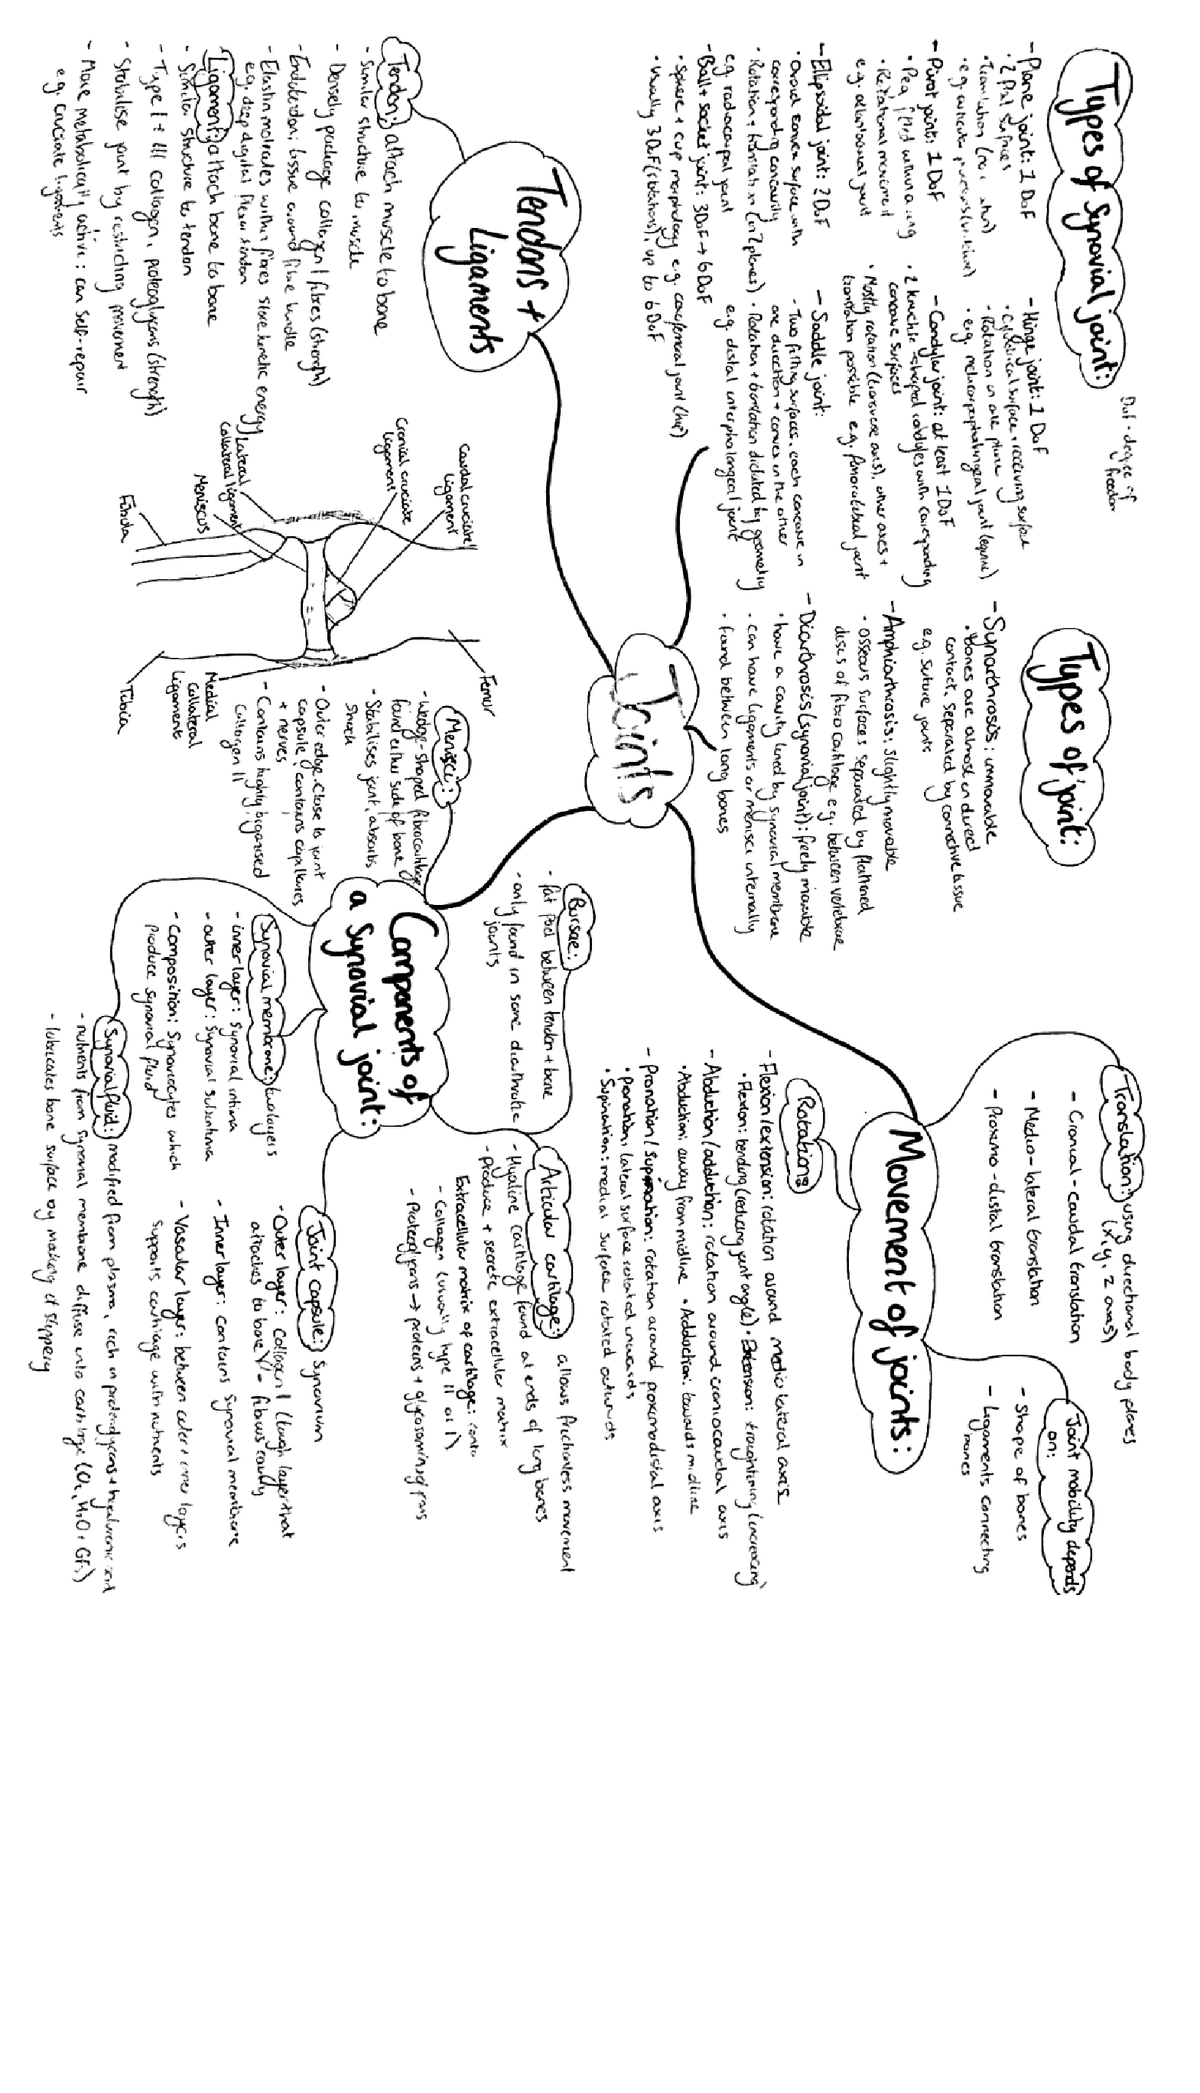 Joints
Types of Synovial joint:
DoF = degree of
freedom
- Plane joint: 1 DoF
• 2 flat surfaces
• Translation
• e.g. articular processes (vertebrae)
- Hinge joint: 1 DoF
• cylindrical surface + receiving surface
• Rotation in one plane
• e.g. metacarpophalangeal joint (equine)
- Pivot joint: 1 DoF
• Peg fitted within a ring
• Rotational movement
e.g. atlantoaxial joint
- Condylar joint: at least 1 DoF
• 2 knuckle-shaped condyles with corresponding
concave surfaces
• Mostly rotation (transverse axis), other axes +
translation possible e.g. femorotibial joint
- Ellipsoidal joint: 2 DoF
• Ovoid convex surface with
corresponding concavity
• Rotation + translation (in 2 planes)
e.g. radiocarpal joint
- Saddle joint:
• Two fitting surfaces, each concave in
one direction + convex in the other
• Rotation + translation dictated by geometry
e.g. distal interphalangeal joint
- Ball + socket joint: 3 DoF → 6 DoF
• Sphere + cup morphology e.g. coxofemoral joint (hip)
• Usually 3 DoF (rotations), up to 6 DoF
Types of joint:
- Synarthrosis: immovable
• Bones are almost in direct
contact, separated by connective tissue
e.g. suture joints
- Amphiarthrosis: slightly movable
• osseous surfaces separated by flattened
discs of fibrocartilage e.g. between vertebrae
- Diarthrosis (synovial joint): freely movable
• have a cavity lined by synovial membrane
• can have ligaments or menisci internally
• found between long bones
Movement of joints:
Translation: using directional body planes
(x, y, z axes)
- Cranial-caudal translation
- Medio-lateral translation
- Proximo-distal translation
Joint mobility depends
on:
- Shape of bones
- Ligaments connecting
bones
Rotations
- Flexion/extension: rotation around medio-lateral axis
• Flexion: bending (reducing joint angle) • Extension: straightening (increasing)
- Abduction/adduction: rotation around craniocaudal axis
• Abduction: away from midline • Adduction: towards midline
- Pronation/supination: rotation around proximodistal axis
• Pronation, lateral surface rotated inwards
• Supination: medial surface rotated outwards
Tendons +
Ligaments
Tendons attach muscle to bone
• Similar structure to muscle
- Densely package collagen I fibres (strength)
- Endotendon: tissue around fibre bundle
- Elastin matrices within fibres store kinetic energy
e.g. deep digital flexor tendon
Ligaments attach bone to bone
- Similar structure to tendon
- Type I + III collagen, proteoglycans (strength)
- Stabilise joint by restricting movement
- More metabolically active: can self-repair
e.g. cruciate ligaments
Caudal cruciate
ligament
Cranial cruciate
ligament
Lateral
collateral ligament
Meniscus
Fibula
Femur
Medial
collateral
ligament
Tibia
Components of
a Synovial joint:
Menisci:
- Wedge-shaped fibrocartilage
found either side of bone
- Stabilises joint, absorbs
shock
- Outer edge close to joint
capsule: contains capillaries
+ nerves
- Contains highly organised
collagen II
Bursae:
• fat pad between tendon + bone
- only found in some diarthrotic
joints
Articular cartilage: allows frictionless movement
- Hyaline cartilage found at ends of long bones
- Produce + secrete extracellular matrix
Extracellular matrix of cartilage:
- Collagen (usually type II or I)
- Proteoglycans → proteins + glycosaminoglycans
Joint capsule: Synovium
- Outer layer: Collagen I (tough layer that
attaches to bone) +/- fibrous cavity
- Inner layer: contains synovial membrane
- Vascular layer: between outer + inner layers
supports cartilage with nutrients
Synovial membrane: two layers
- inner layer: synovial intima
- outer layer: synovial subintima
- Composition: synoviocytes which
produce synovial fluid
Synovial fluid: modified from plasma, rich in proteoglycans + hyaluronic acid
- nutrients from synovial membrane diffuse into cartilage (O₂, H₂O + GFs)
- lubricates bone surface by making it slippery